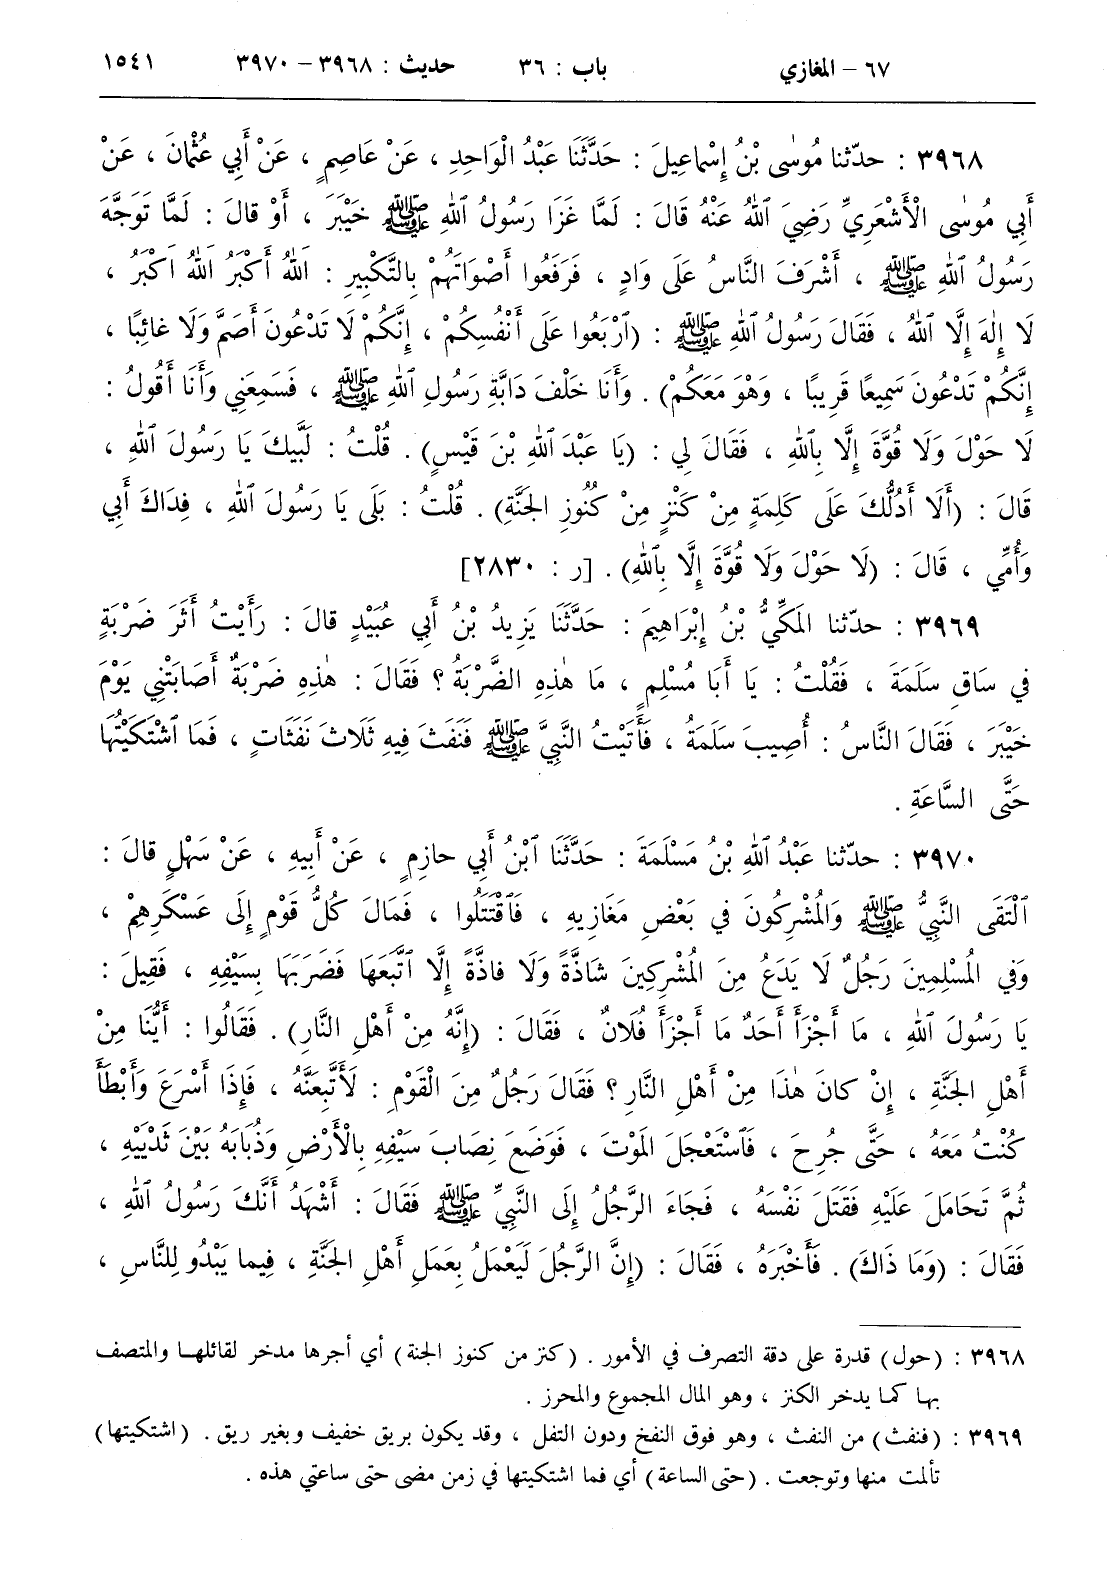 ٦٧ - المغازي باب : ٣٦ حديث : ٣٩٦٨ - ٣٩٧٠ ١٥٤١
٣٩٦٨ : حدّثنا مُوسٰى بْنُ إِسْماعِيلَ : حَدَّثَنَا عَبْدُ الْوَاحِدِ ، عَنْ عَاصِمٍ ، عَنْ أَبِي عُثْمانَ ، عَنْ
أَبِي مُوسٰى الْأَشْعَرِيِّ رَضِيَ ٱللهُ عَنْهُ قَالَ : لَمَّا غَزَا رَسُولُ ٱللهِ ﷺ خَيْبَرَ ، أَوْ قالَ : لَمَّا تَوَجَّهَ
رَسُولُ ٱللهِ ﷺ ، أَشْرَفَ النَّاسُ عَلَى وَادٍ ، فَرَفَعُوا أَصْوَاتَهُمْ بِالتَّكْبِيرِ : ٱللهُ أَكْبَرُ ٱللهُ أَكْبَرُ ،
لَا إِلٰهَ إِلَّا ٱللهُ ، فَقَالَ رَسُولُ ٱللهِ ﷺ : (ٱرْبَعُوا عَلَى أَنْفُسِكُمْ ، إِنَّكُمْ لَا تَدْعُونَ أَصَمَّ وَلَا غائِبًا ،
إِنَّكُمْ تَدْعُونَ سَمِيعًا قَرِيبًا ، وَهْوَ مَعَكُمْ) . وَأَنَا خَلْفَ دَابَّةِ رَسُولِ ٱللهِ ﷺ ، فَسَمِعَنِي وَأَنَا أَقُولُ :
لَا حَوْلَ وَلَا قُوَّةَ إِلَّا بِٱللهِ ، فَقَالَ لِي : (يَا عَبْدَ ٱللهِ بْنَ قَيْسٍ) . قُلْتُ : لَبَّيْكَ يَا رَسُولَ ٱللهِ ،
قَالَ : (أَلَا أَدُلُّكَ عَلَى كَلِمَةٍ مِنْ كَنْزٍ مِنْ كُنُوزِ الجَنَّةِ) . قُلْتُ : بَلَى يَا رَسُولَ ٱللهِ ، فِدَاكَ أَبِي
وَأُمِّي ، قَالَ : (لَا حَوْلَ وَلَا قُوَّةَ إِلَّا بِٱللهِ) . [ر : ٢٨٣٠]
٣٩٦٩ : حدّثنا المَكِّيُّ بْنُ إِبْرَاهِيمَ : حَدَّثَنَا يَزِيدُ بْنُ أَبِي عُبَيْدٍ قالَ : رَأَيْتُ أَثَرَ ضَرْبَةٍ
في سَاقِ سَلَمَةَ ، فَقُلْتُ : يَا أَبَا مُسْلِمٍ ، ما هٰذِهِ الضَّرْبَةُ ؟ فَقَالَ : هٰذِهِ ضَرْبَةٌ أَصَابَتْنِي يَوْمَ
خَيْبَرَ ، فَقَالَ النَّاسُ : أُصِيبَ سَلَمَةُ ، فَأَتَيْتُ النَّبِيَّ ﷺ فَنَفَثَ فِيهِ ثَلَاثَ نَفَثَاتٍ ، فَمَا ٱشْتَكَيْتُهَا
حَتَّى السَّاعَةِ .
٣٩٧٠ : حدّثنا عَبْدُ ٱللهِ بْنُ مَسْلَمَةَ : حَدَّثَنَا ٱبْنُ أَبِي حازِمٍ ، عَنْ أَبِيهِ ، عَنْ سَهْلٍ قالَ :
ٱلْتَقَى النَّبِيُّ ﷺ وَالْمُشْرِكُونَ في بَعْضِ مَغَازِيهِ ، فَٱقْتَتَلُوا ، فَمَالَ كُلُّ قَوْمٍ إِلَى عَسْكَرِهِمْ ،
وَفي الْمُسْلِمِينَ رَجُلٌ لَا يَدَعُ مِنَ الْمُشْرِكِينَ شَاذَّةً وَلَا فاذَّةً إِلَّا ٱتَّبَعَهَا فَضَرَبَهَا بِسَيْفِهِ ، فَقِيلَ :
يَا رَسُولَ ٱللهِ ، مَا أَجْزَأَ أَحَدٌ مَا أَجْزَأَ فُلَانٌ ، فَقَالَ : (إِنَّهُ مِنْ أَهْلِ النَّارِ) . فَقَالُوا : أَيُّنَا مِنْ
أَهْلِ الجَنَّةِ ، إِنْ كانَ هٰذَا مِنْ أَهْلِ النَّارِ ؟ فَقَالَ رَجُلٌ مِنَ الْقَوْمِ : لَأَتَّبِعَنَّهُ ، فَإِذَا أَسْرَعَ وَأَبْطَأَ
كُنْتُ مَعَهُ ، حَتَّى جُرِحَ ، فَٱسْتَعْجَلَ المَوْتَ ، فَوَضَعَ نِصَابَ سَيْفِهِ بِالْأَرْضِ وَذُبَابَهُ بَيْنَ ثَدْيَيْهِ ،
ثُمَّ تَحَامَلَ عَلَيْهِ فَقَتَلَ نَفْسَهُ ، فَجَاءَ الرَّجُلُ إِلَى النَّبِيِّ ﷺ فَقَالَ : أَشْهَدُ أَنَّكَ رَسُولُ ٱللهِ ،
فَقَالَ : (وَمَا ذَاكَ) . فَأَخْبَرَهُ ، فَقَالَ : (إِنَّ الرَّجُلَ لَيَعْمَلُ بِعَمَلِ أَهْلِ الجَنَّةِ ، فِيما يَبْدُو لِلنَّاسِ ،
٣٩٦٨ : (حول) قدرة على دقة التصرف في الأمور . (كنز من كنوز الجنة) أي أجرها مدخر لقائلها والمتصف
بها كما يدخر الكنز ، وهو المال المجموع والمحرز .
٣٩٦٩ : (فنفث) من النفث ، وهو فوق النفخ ودون التفل ، وقد يكون بريق خفيف وبغير ريق . (اشتكيتها)
تألمت منها وتوجعت . (حتى الساعة) أي فما اشتكيتها في زمن مضى حتى ساعتي هذه .